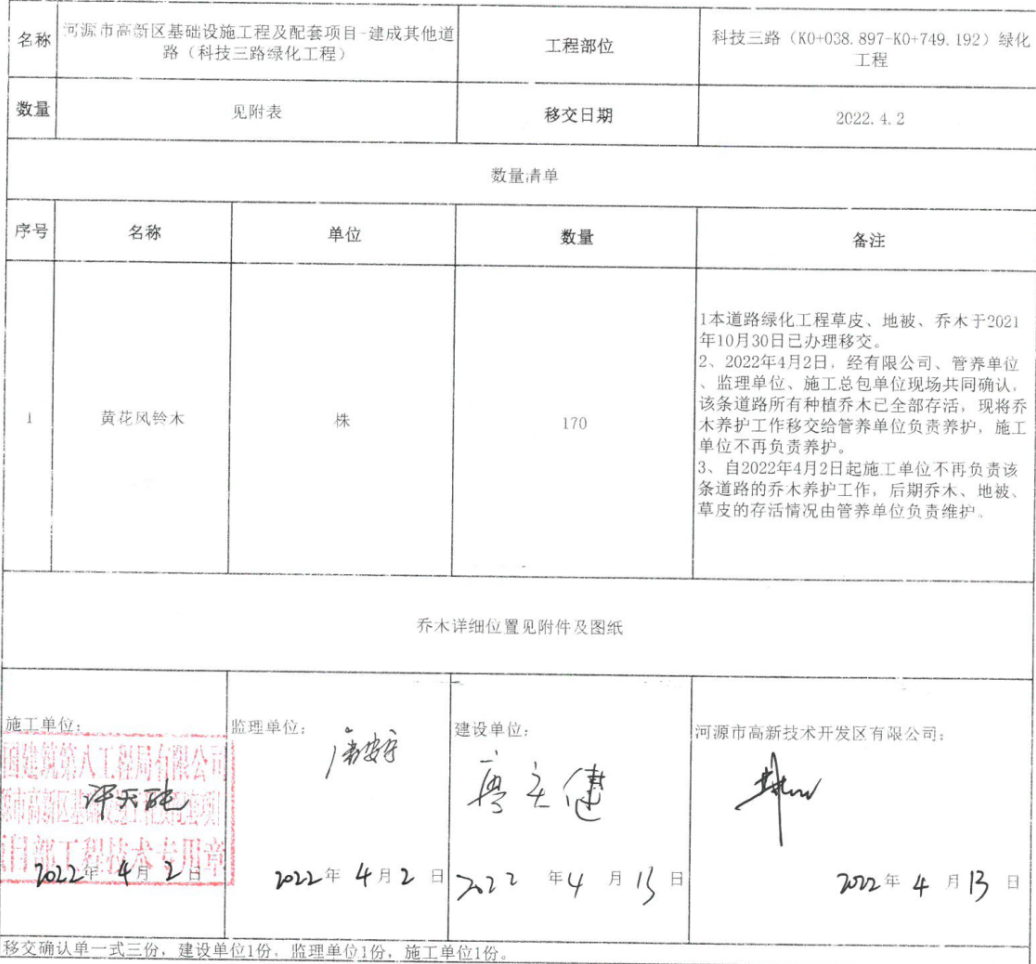 名称
河源市高新区基础设施工程及配套项目-建成其他道
路（科技三路绿化工程）
工程部位
科技三路（K0+038.897-K0+749.192）绿化
工程
数量
见附表
移交日期
2022.4.2
数量清单
序号
名称
单位
数量
备注
1
黄花风铃木
株
170
1本道路绿化工程草皮、地被、乔木于2021
年10月30日已办理移交。
2、2022年4月2日，经有限公司、管养单位
、监理单位、施工总包单位现场共同确认，
该条道路所有种植乔木已全部存活，现将乔
木养护工作移交给管养单位负责养护，施工
单位不再负责养护。
3、自2022年4月2日起施工单位不再负责该
条道路的乔木养护工作，后期乔木、地被、
草皮的存活情况由管养单位负责维护。
乔木详细位置见附件及图纸
施工单位：
国建筑第八工程局有限公司
源市高新区基础设施工程及配套项目
项目部工程技术专用章
2022年 4月 2日
监理单位：
2022年 4月 2日
建设单位：
2022年 4月 13日
河源市高新技术开发区有限公司：
2022年 4月 13日
移交确认单一式三份，建设单位1份，监理单位1份，施工单位1份。